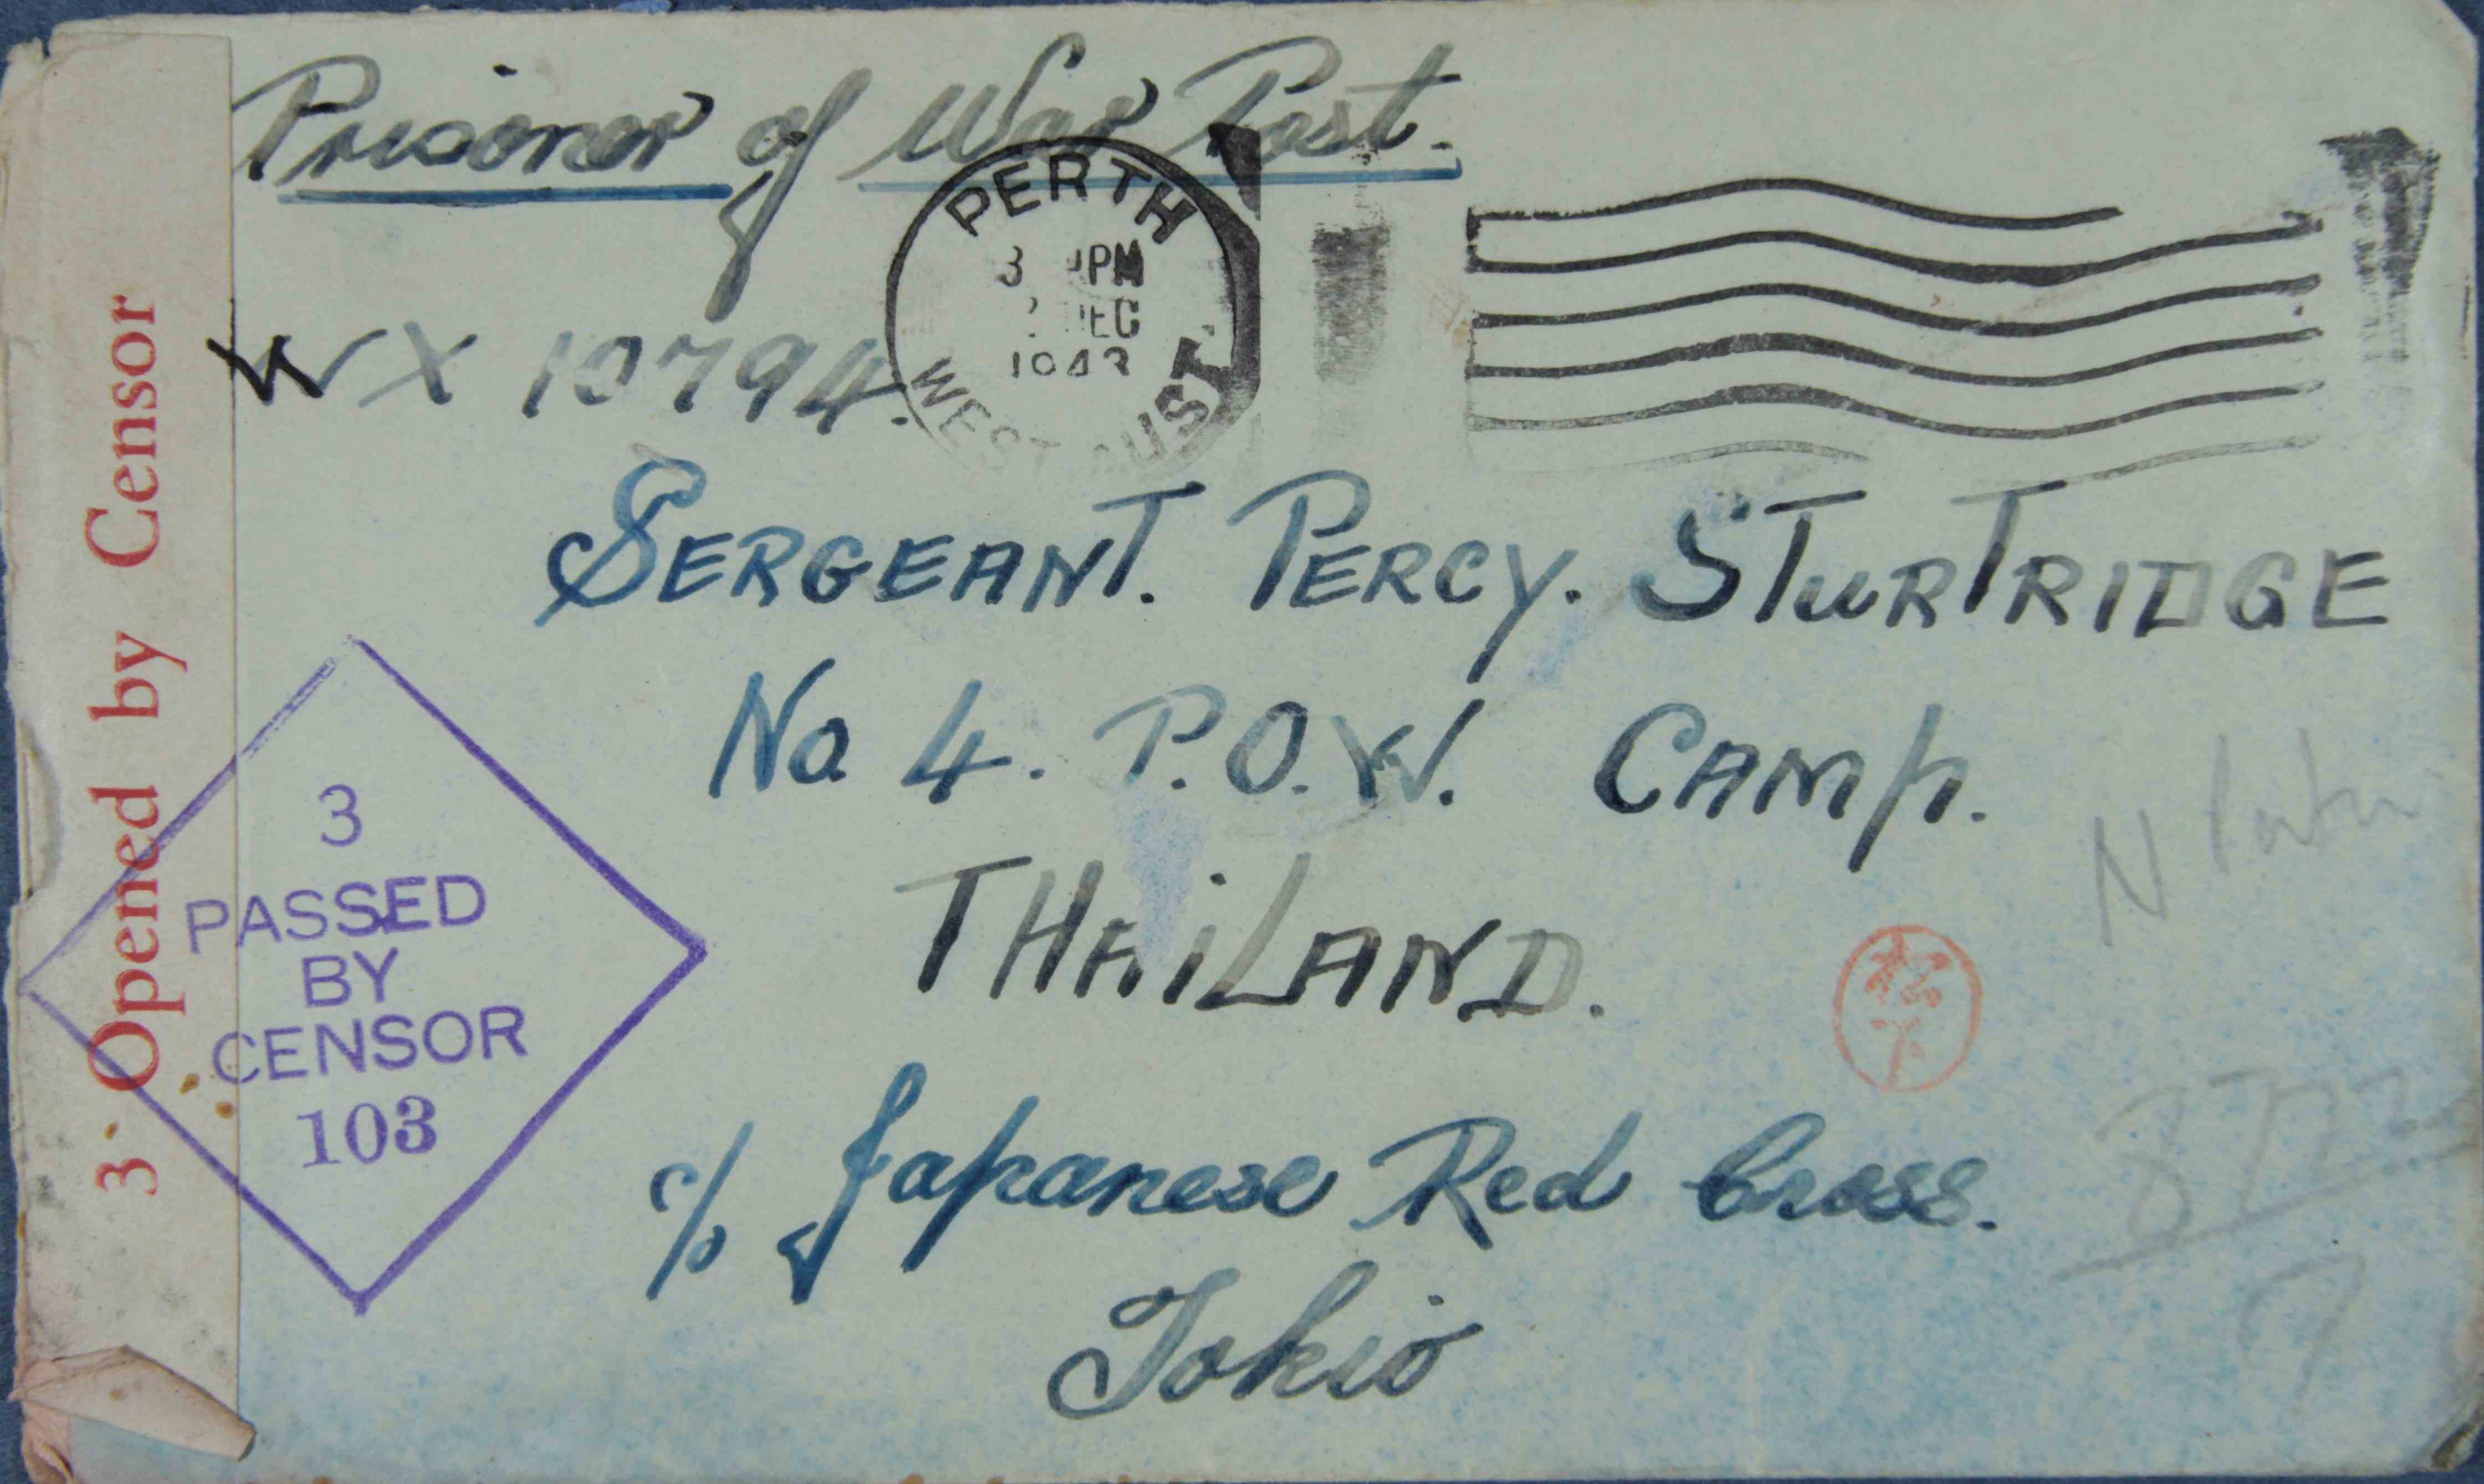 Prisoner of War Post.
PERTH
3 PM
DEC
1943
WEST AUST.
WX 10794.
SERGEANT. PERCY. STURTRIDGE
No 4. P.O.W. CAMP.
THAILAND.
c/o Japanese Red Cross.
Tokio
3 Opened by Censor
3
PASSED
BY
CENSOR
103
松
下
N